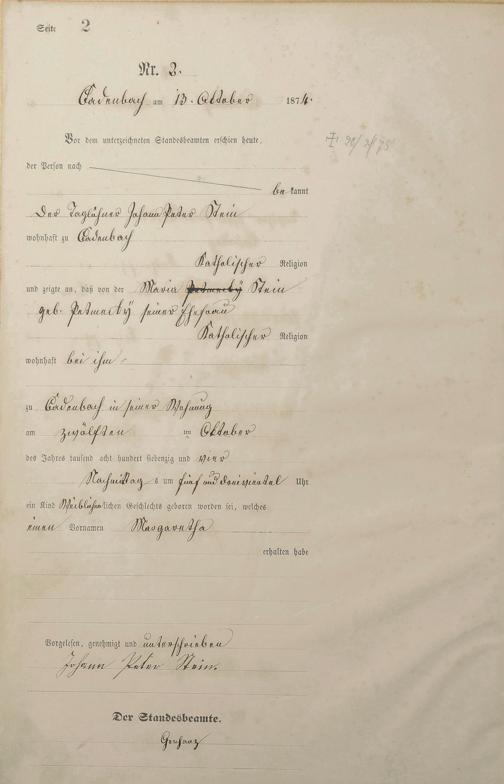 Seite 2
Nr. 2.
Cadenbach am 13. Oktober 1874.
Vor dem unterzeichneten Standesbeamten erschien heute,
der Person nach
be kannt
Der Taglöhner Johann Peter Stein
wohnhaft zu Cadenbach
Katholischer Religion
und zeigte an, daß von der Maria Stein
geb. Petmecky seiner Ehefrau
Katholischer Religion
wohnhaft bei ihm
zu Cadenbach in seiner Wohnung
am zwölften im Oktober
des Jahres tausend acht hundert siebenzig und vier
Nachmittag s um fünf und dreiviertel Uhr
ein Kind weiblichen lichen Geschlechts geboren worden sei, welches
einen Vornamen Margaretha
erhalten habe
Vorgelesen, genehmigt und unterschrieben
Johann Peter Stein.
Der Standesbeamte.